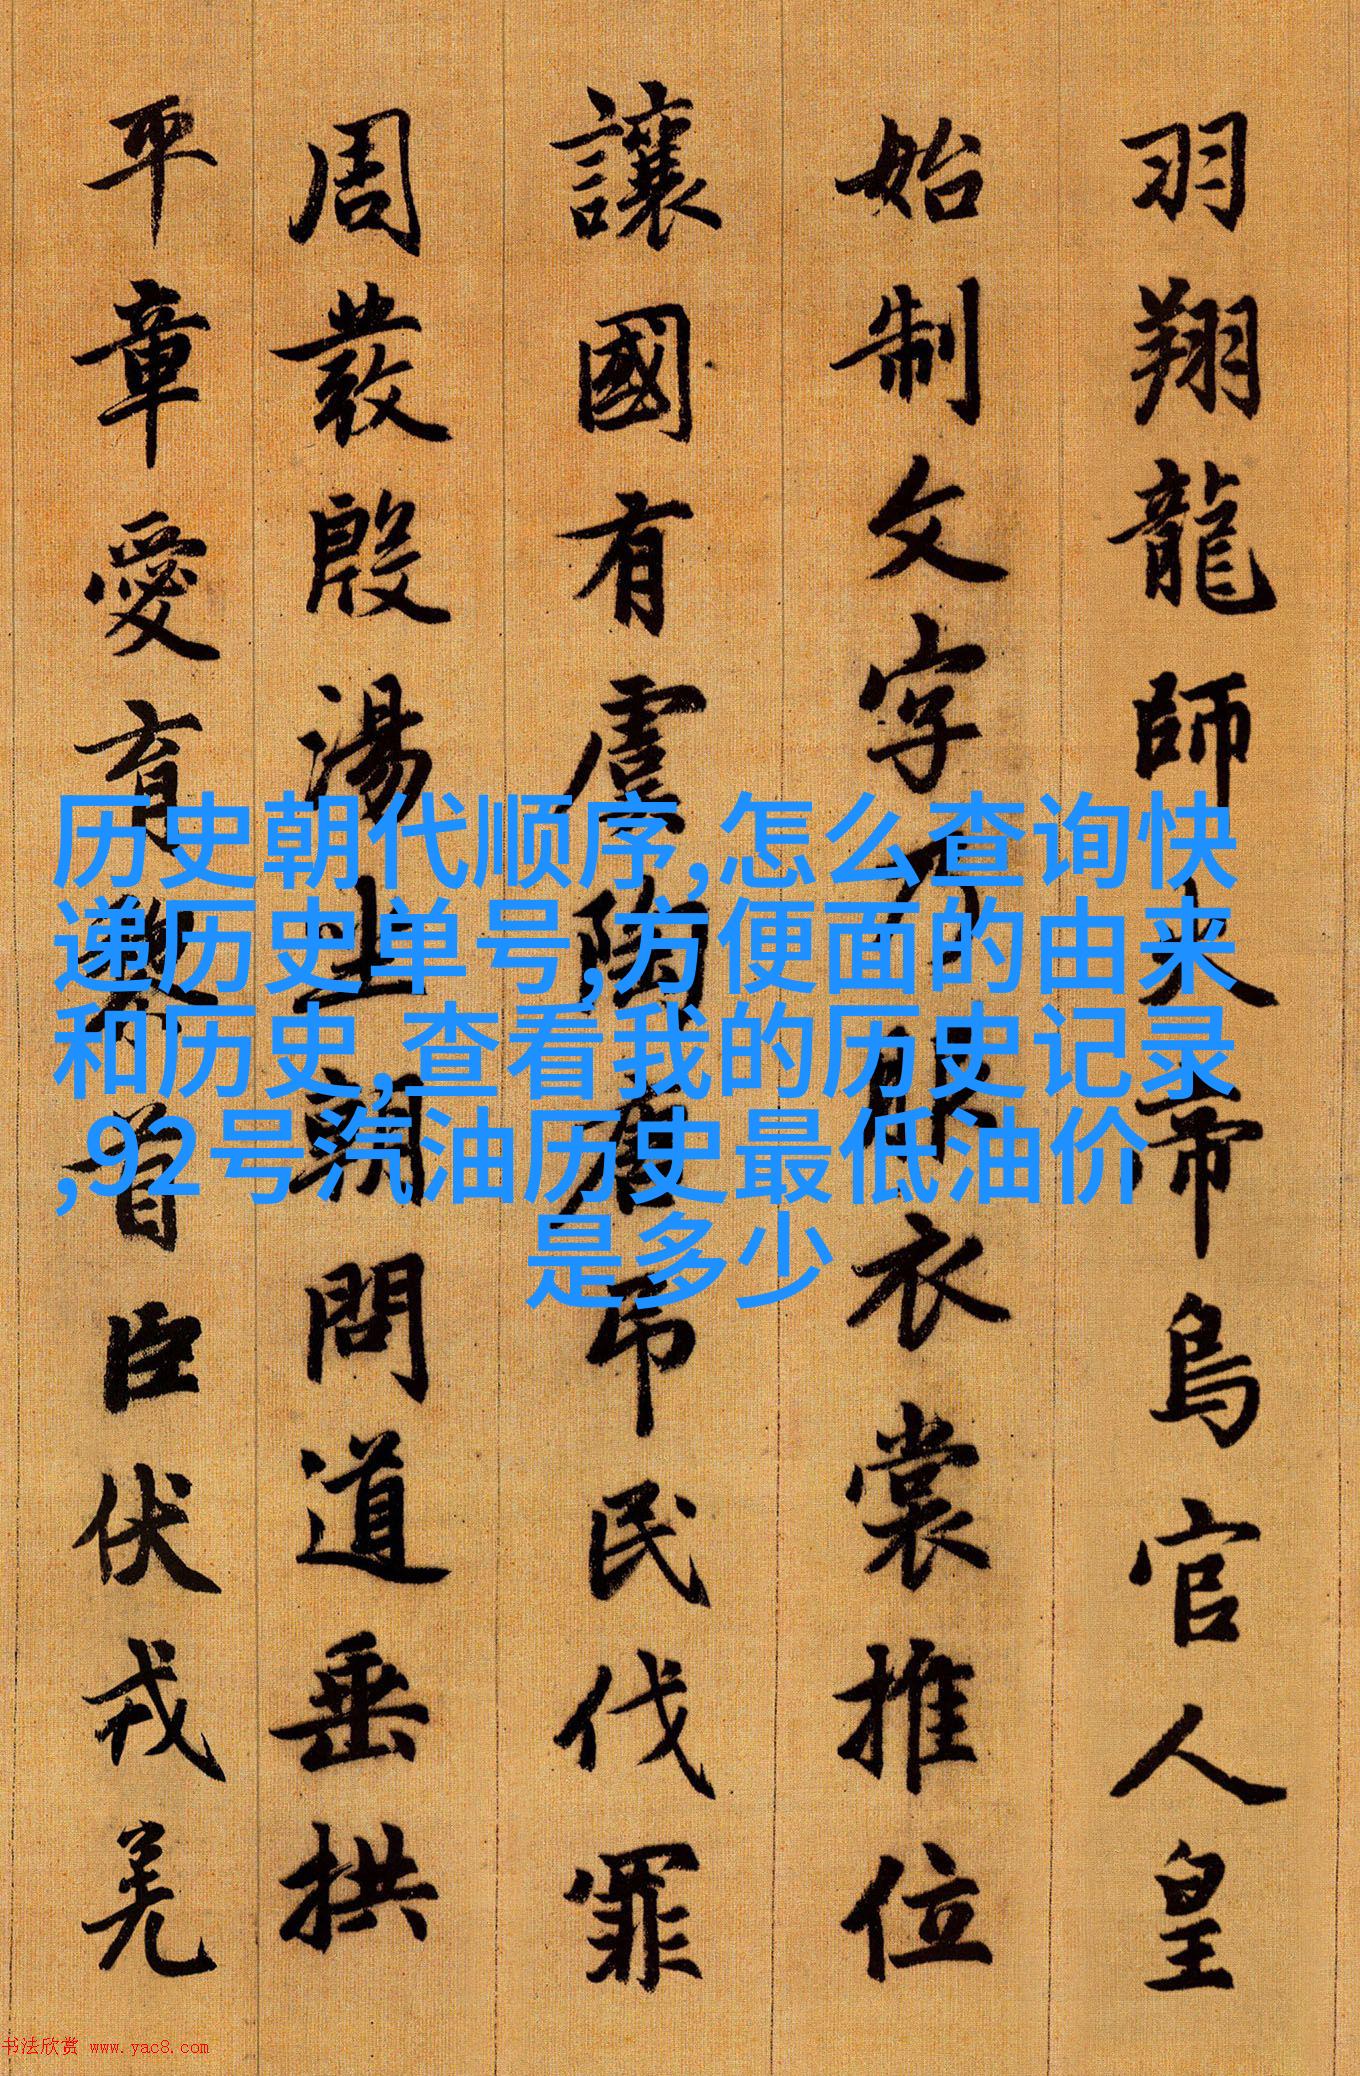 羽翔龍師火帝鳥官人皇
始制文字乃服衣裳推位
讓國有虞陶唐吊民伐罪
周發殷湯坐朝問道垂拱
平章愛育黎首臣伏戎羌
历史朝代顺序,怎么查询快
递历史单号,方便面的由来
和历史,查看我的历史记录
,92号汽油历史最低油价
是多少
书法欣赏 www.yac8.com